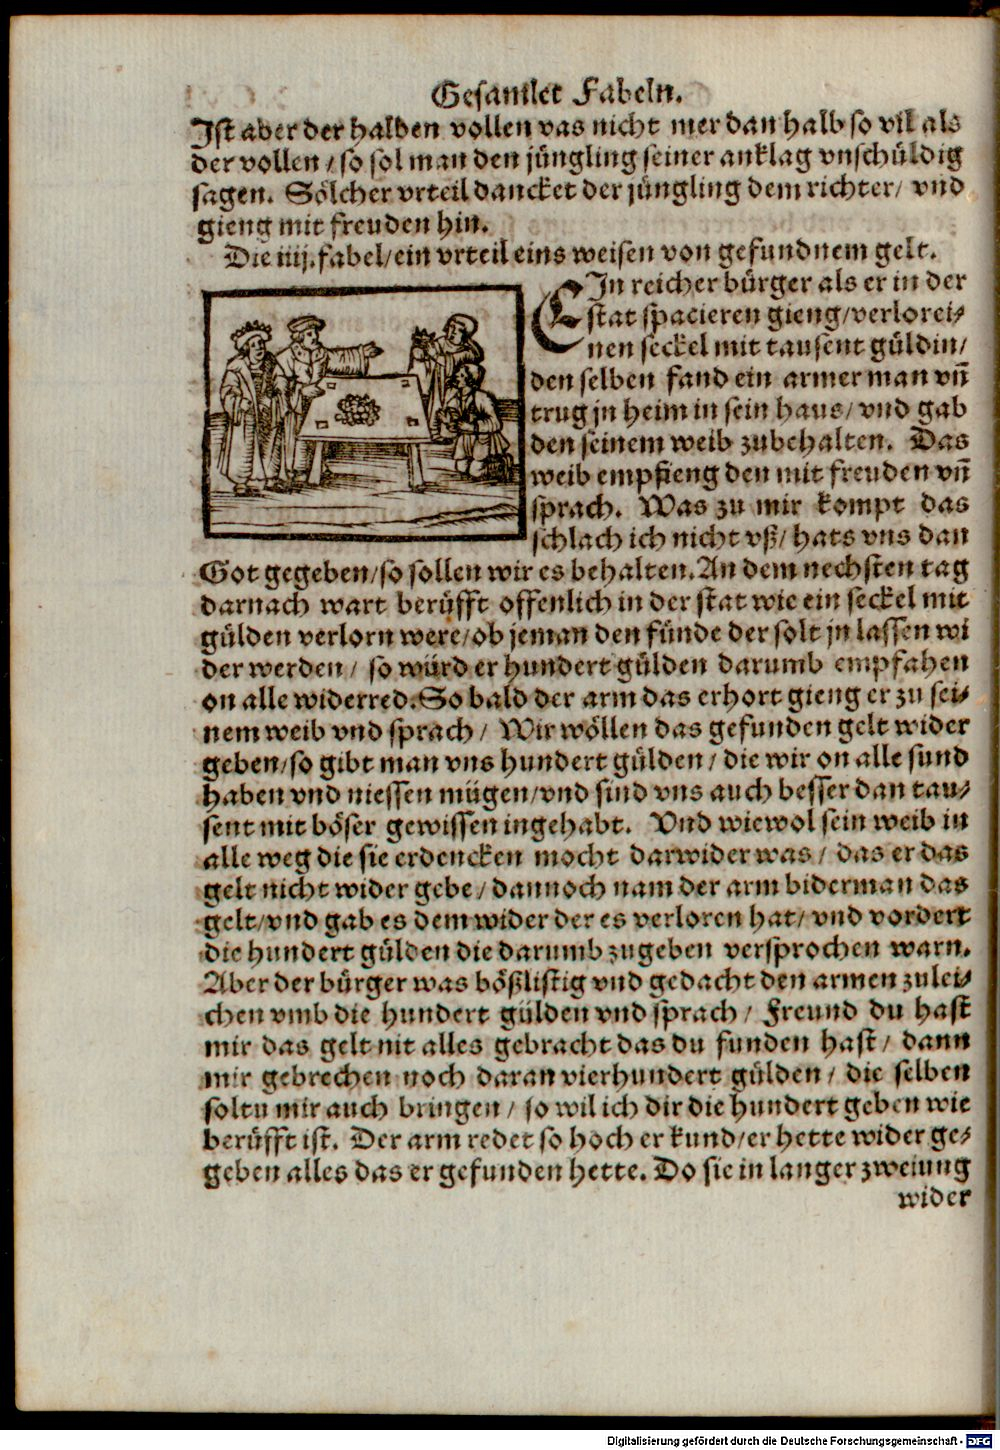 Gesamlet Fabeln.
Ist aber der halben vollen vas nicht mer dan halb so vil als
der vollen / so sol man den jüngling seiner anklag vnschüldig
sagen. Sölcher vrteil dancket der jüngling dem richter / vnd
gieng mit freuden hin.
Die iiij. fabel / ein vrteil eins weisen von gefundnem gelt.
EIn reicher bürger als er in der
stat spacieren gieng / verlor ei⸗
nen seckel mit tausent güldin /
den selben fand ein armer man vñ
trug jn heim in sein haus / vnd gab
den seinem weib zubehalten. Das
weib empfieng den mit freuden vñ
sprach. Was zu mir kompt das
schlach ich nicht vß / hats vns dan
Got gegeben / so sollen wir es behalten. An dem nechsten tag
darnach wart berüfft offenlich in der stat wie ein seckel mit
gülden verlorn were / ob jeman den fünde der solt jn lassen wi
der werden / so würd er hundert gülden darumb empfahen
on alle widerred. So bald der arm das erhort gieng er zu sei⸗
nem weib vnd sprach / Wir wöllen das gefunden gelt wider
geben / so gibt man vns hundert gülden / die wir on alle sund
haben vnd niessen mügen / vnd sind vns auch besser dan tau⸗
sent mit böser gewissen ingehabt. Vnd wiewol sein weib in
alle weg die sie erdencken mocht darwider was / das er das
gelt nicht wider gebe / dannoch nam der arm biderman das
gelt / vnd gab es dem wider der es verloren hat / vnd vordert
die hundert gülden die darumb zugeben versprochen warn.
Aber der bürger was bößlistig vnd gedacht den armen zulei⸗
chen vmb die hundert gülden vnd sprach / Freund du hast
mir das gelt nit alles gebracht das du funden hast / dann
mir gebrechen noch daran vierhundert gülden / die selben
soltu mir auch bringen / so wil ich dir die hundert geben wie
berüfft ist. Der arm redet so hoch er kund / er hette wider ge⸗
geben alles das er gefunden hette. Do sie in langer zweiung
wider
Digitalisierung gefördert durch die Deutsche Forschungsgemeinschaft - DFG